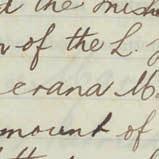 d the mish
of the L.
erana M
mount of